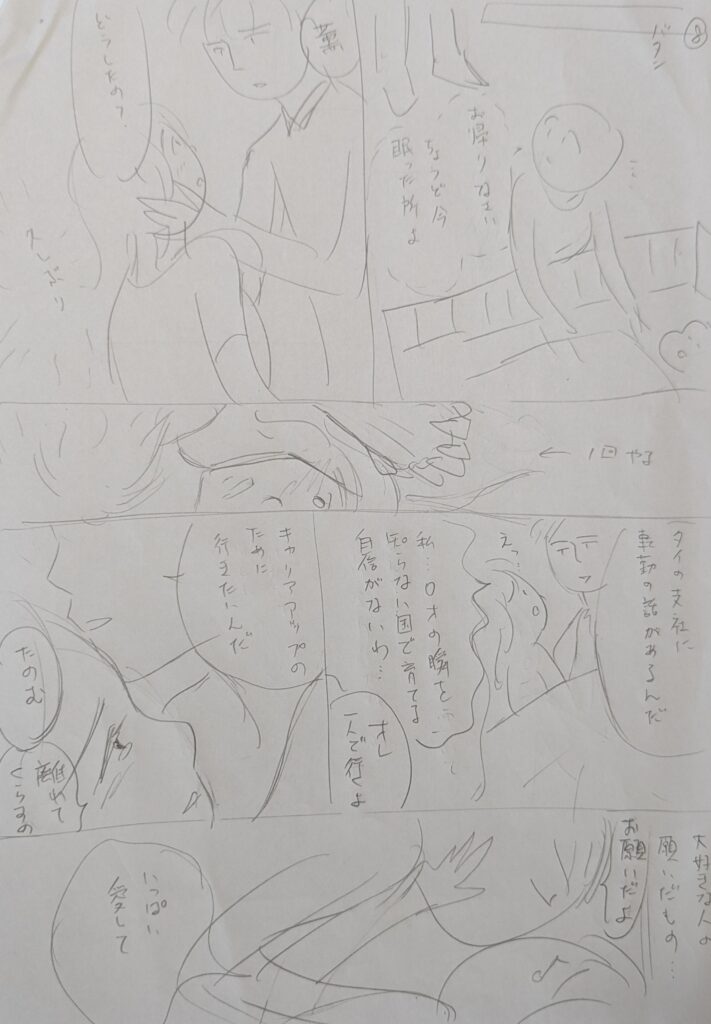 ⑧
バタン
…
お帰りなさい
ちょうど今
眠った所よ
薫
どうしたの?
久しぶり
← 1回 やる
タイの支社に
転勤の話があるんだ
えっ…
私…0才の瞬を
知らない国で育てる
自信がないわ…
オレ
一人で行くよ
キャリアアップの
ために
行きたいんだ
たのむ
離れて
くらすの
大好きな人の
願いだもの…
お願いだよ
いっぱい
愛して